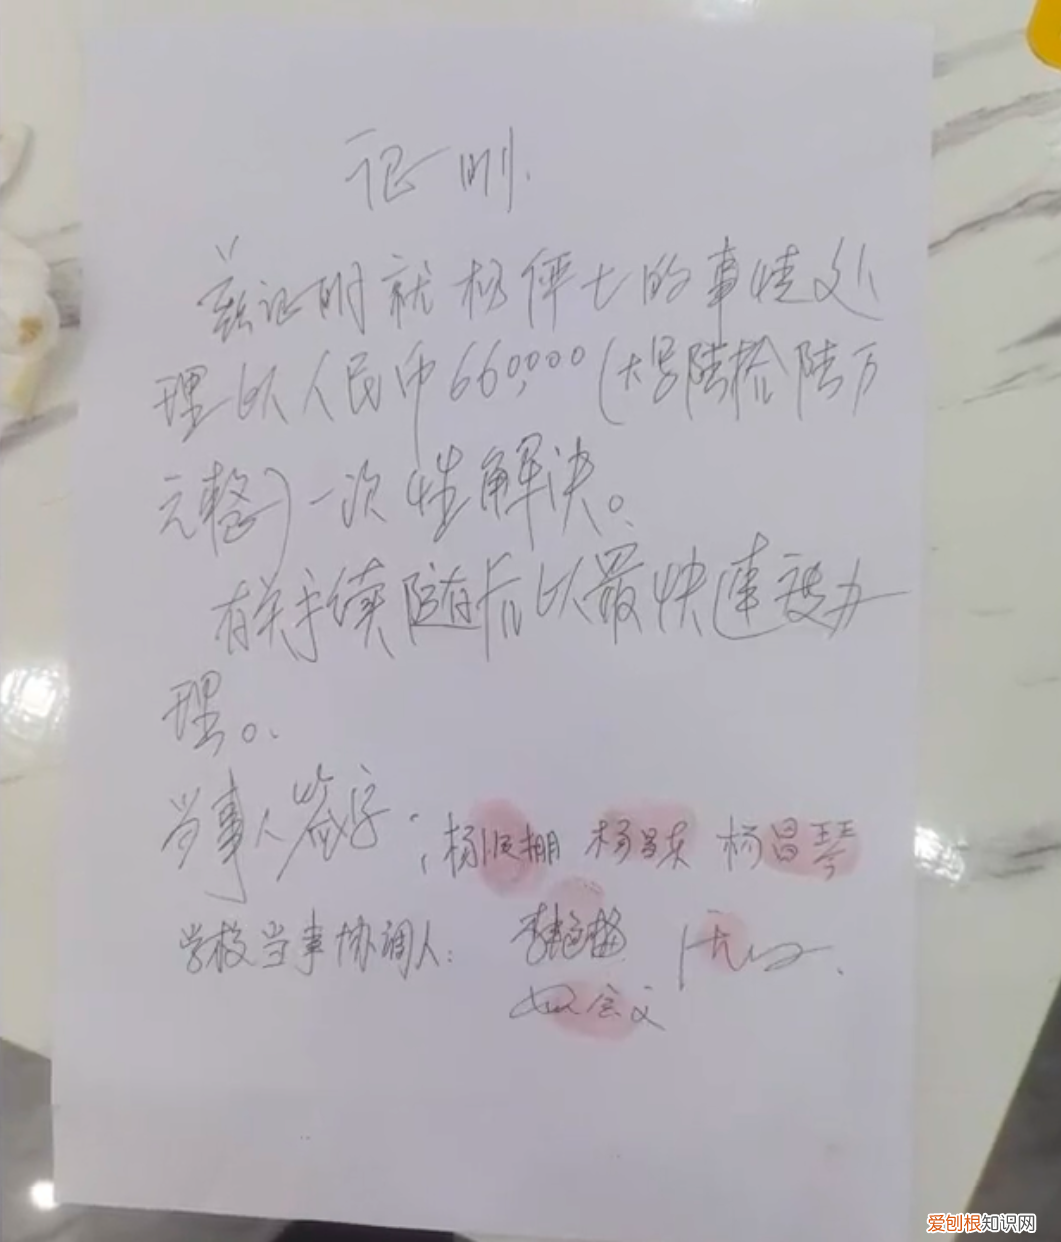 证明.
兹证明就杨伊七的事情处
理以人民币660,000(大写陆拾陆万
元整)一次性解决。
有关手续随后以最快速度办
理。
当事人签字:杨 棚 杨昌东 杨昌琴
学校当事协调人:
爱刨根知识网